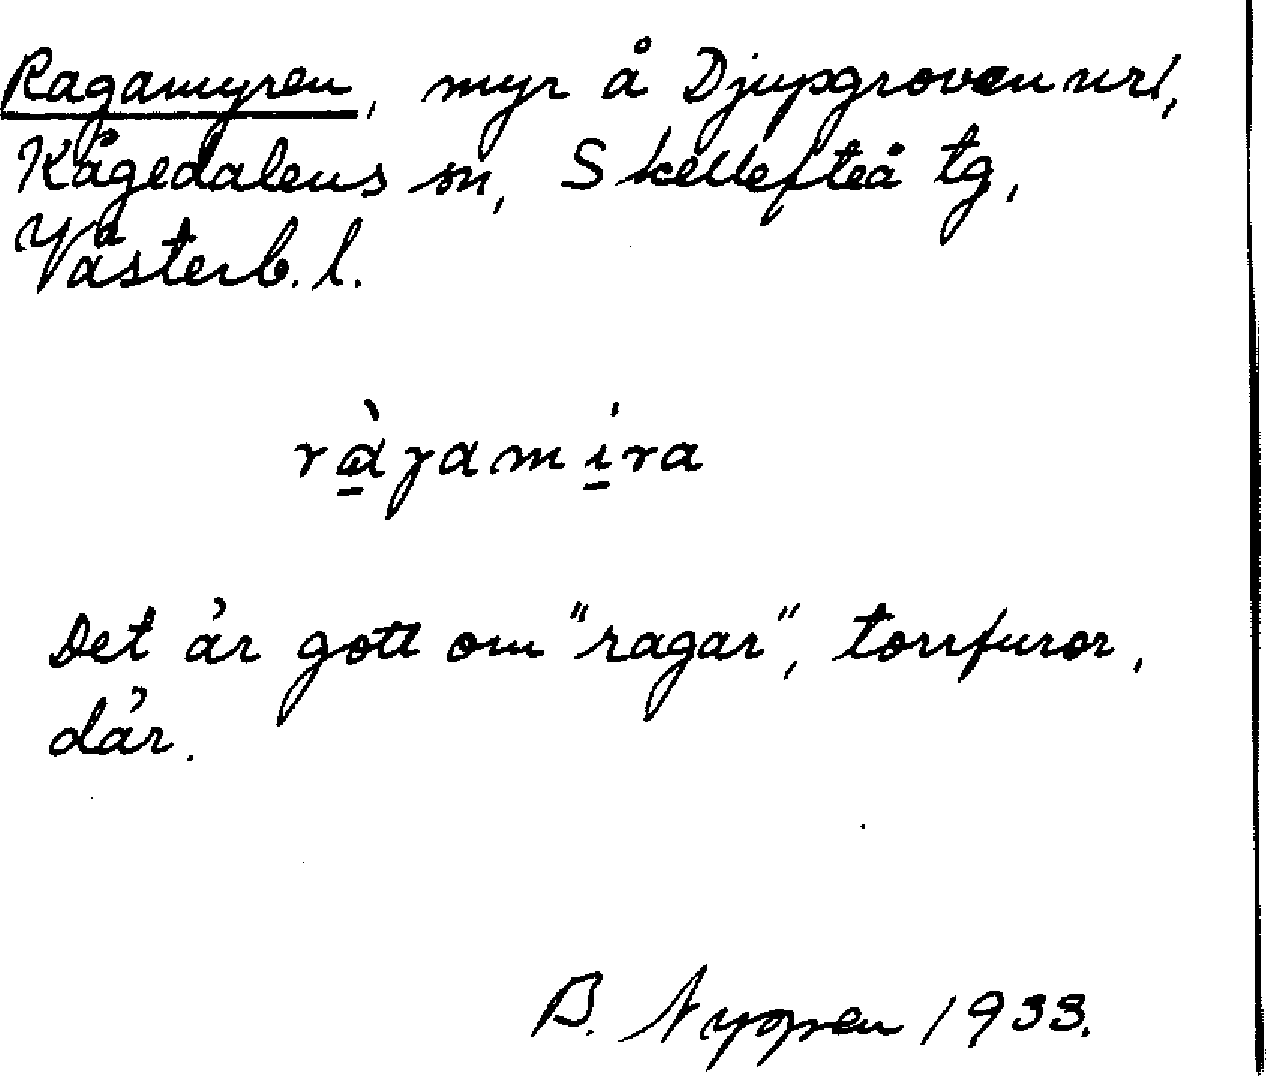 Ragamyren, myr å Djupgroven nr 1,
Kågedalens sn, Skellefteå tg,
Västerb. l.
ràgamira
Det är gott om "ragar", torrfuror,
där.
B. 1933.